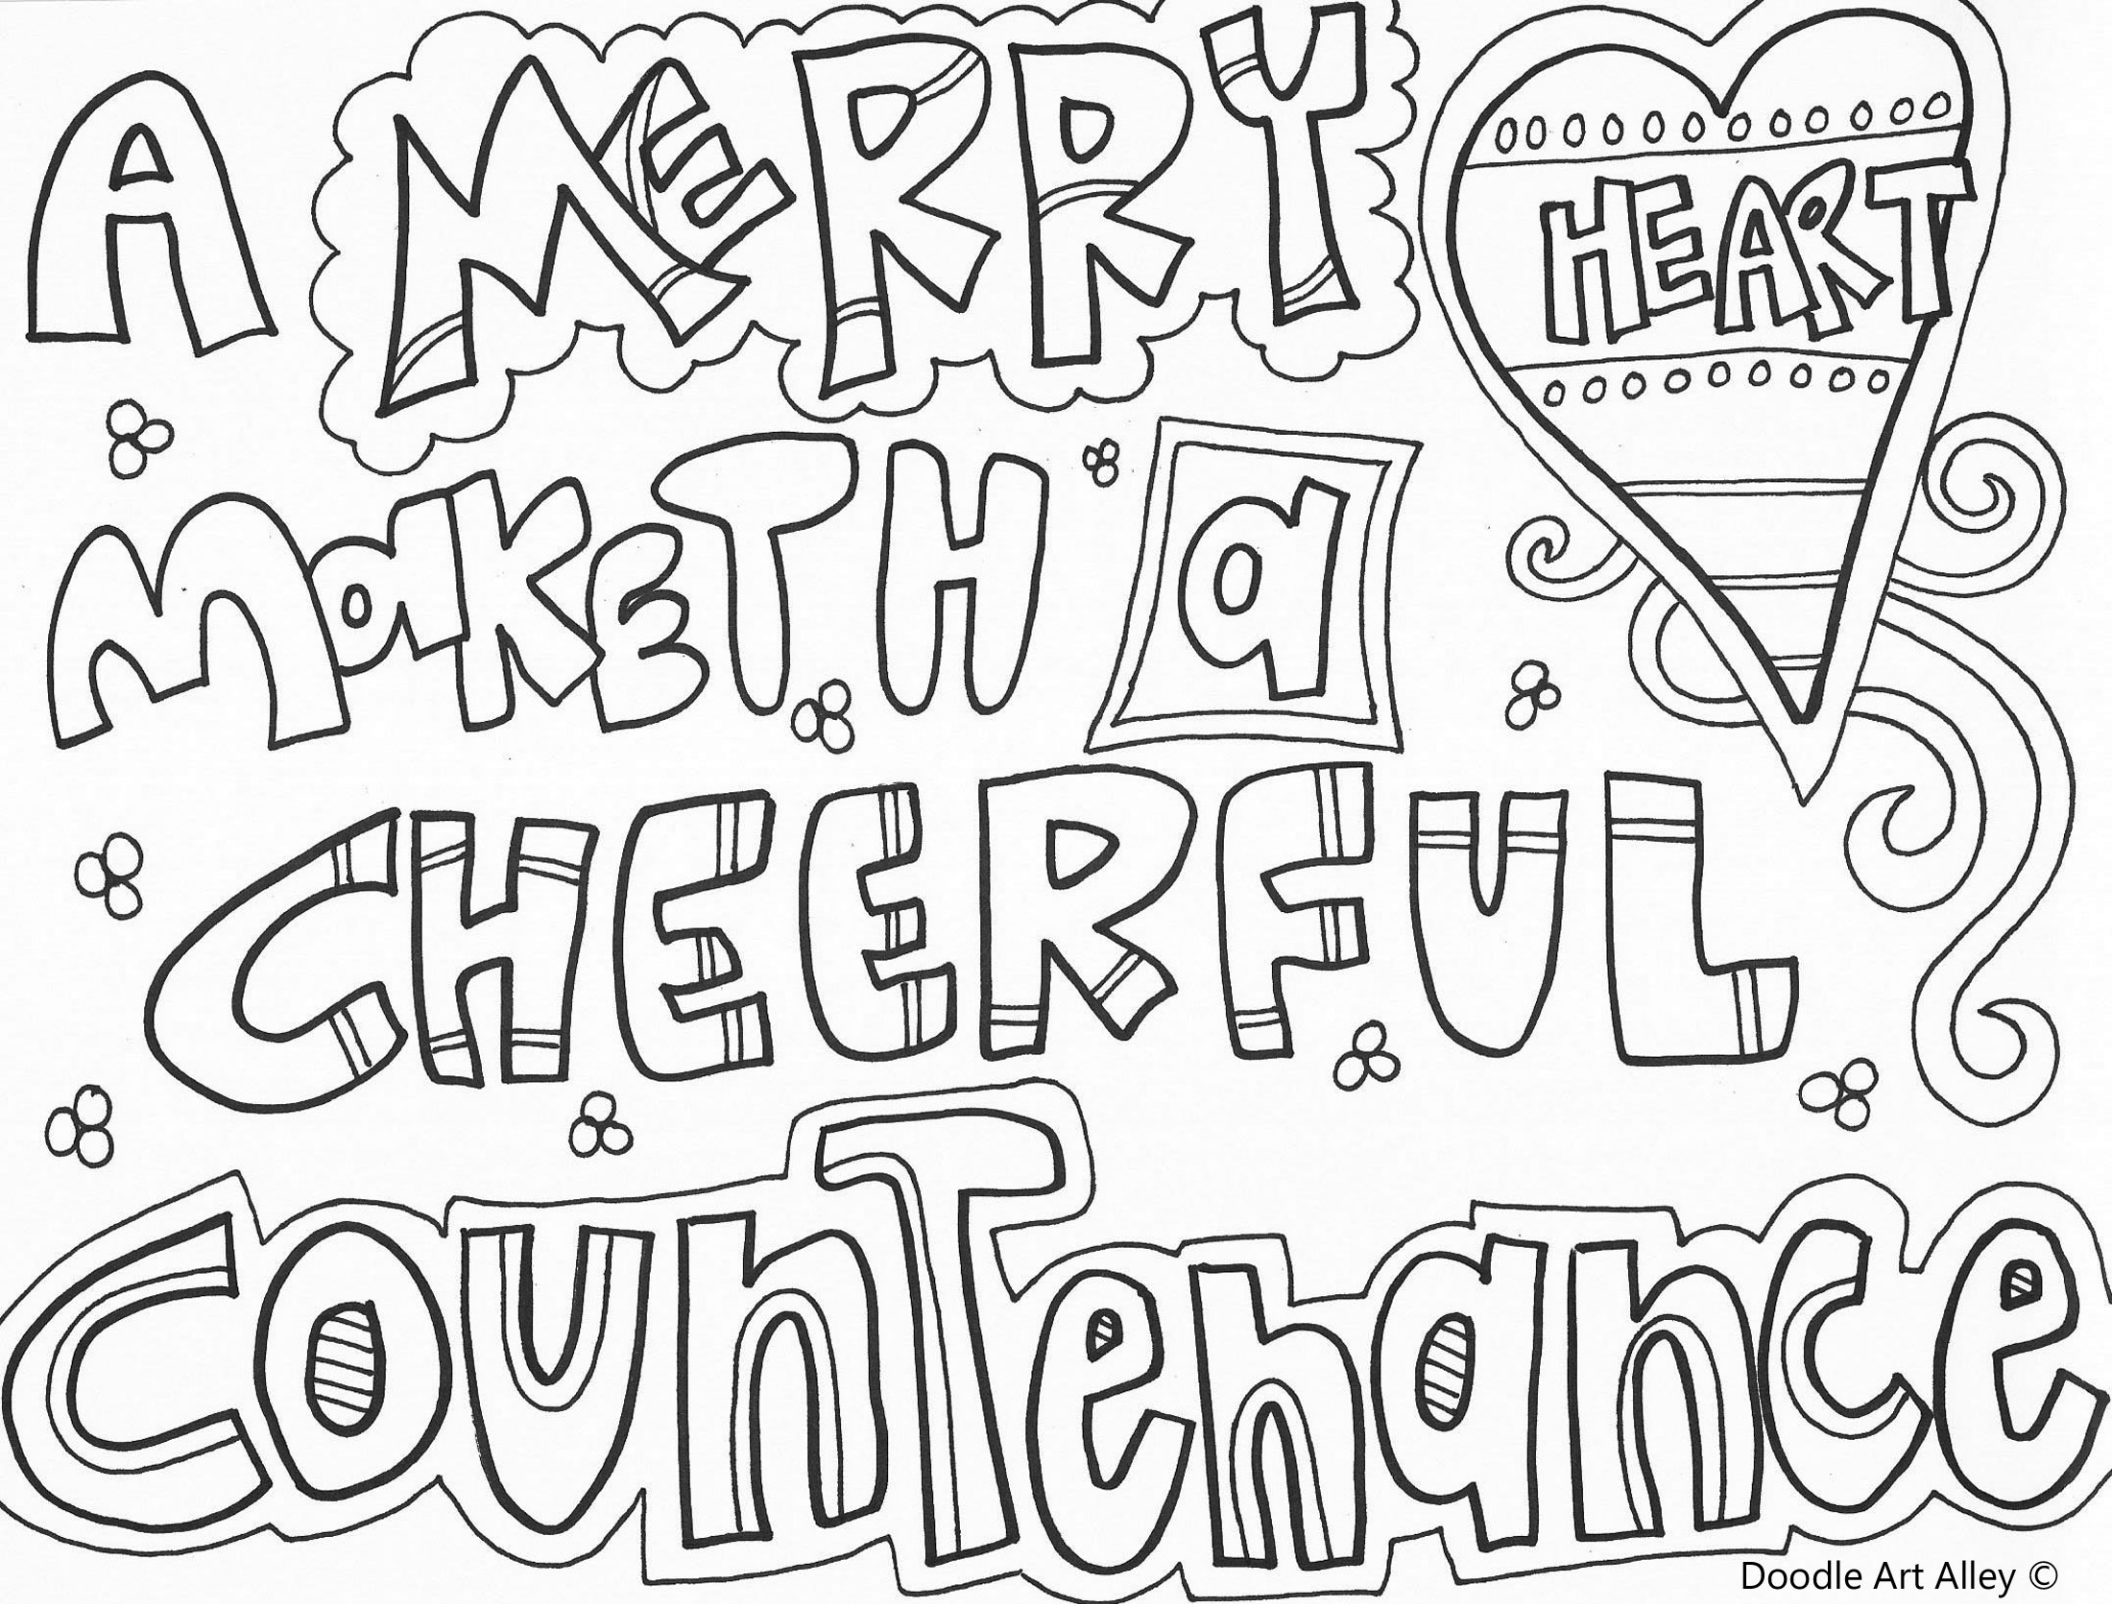 A MERRY HEART
MaKETH a
CHEERFUL
COUnTenance
Doodle Art Alley ©